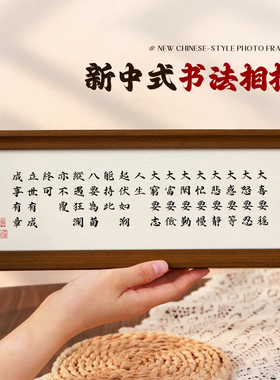 # NEW CHINESE-STYLE PHOTO FRA
新中式书法相
大喜要穩
大怒要忍
大惑要等
大忙要慢
大閑要勤
大富要儉
大窮要志
人生
起伏如潮
能持此
縱遇狂瀾
亦不覆
終可
立世有成
成事有章